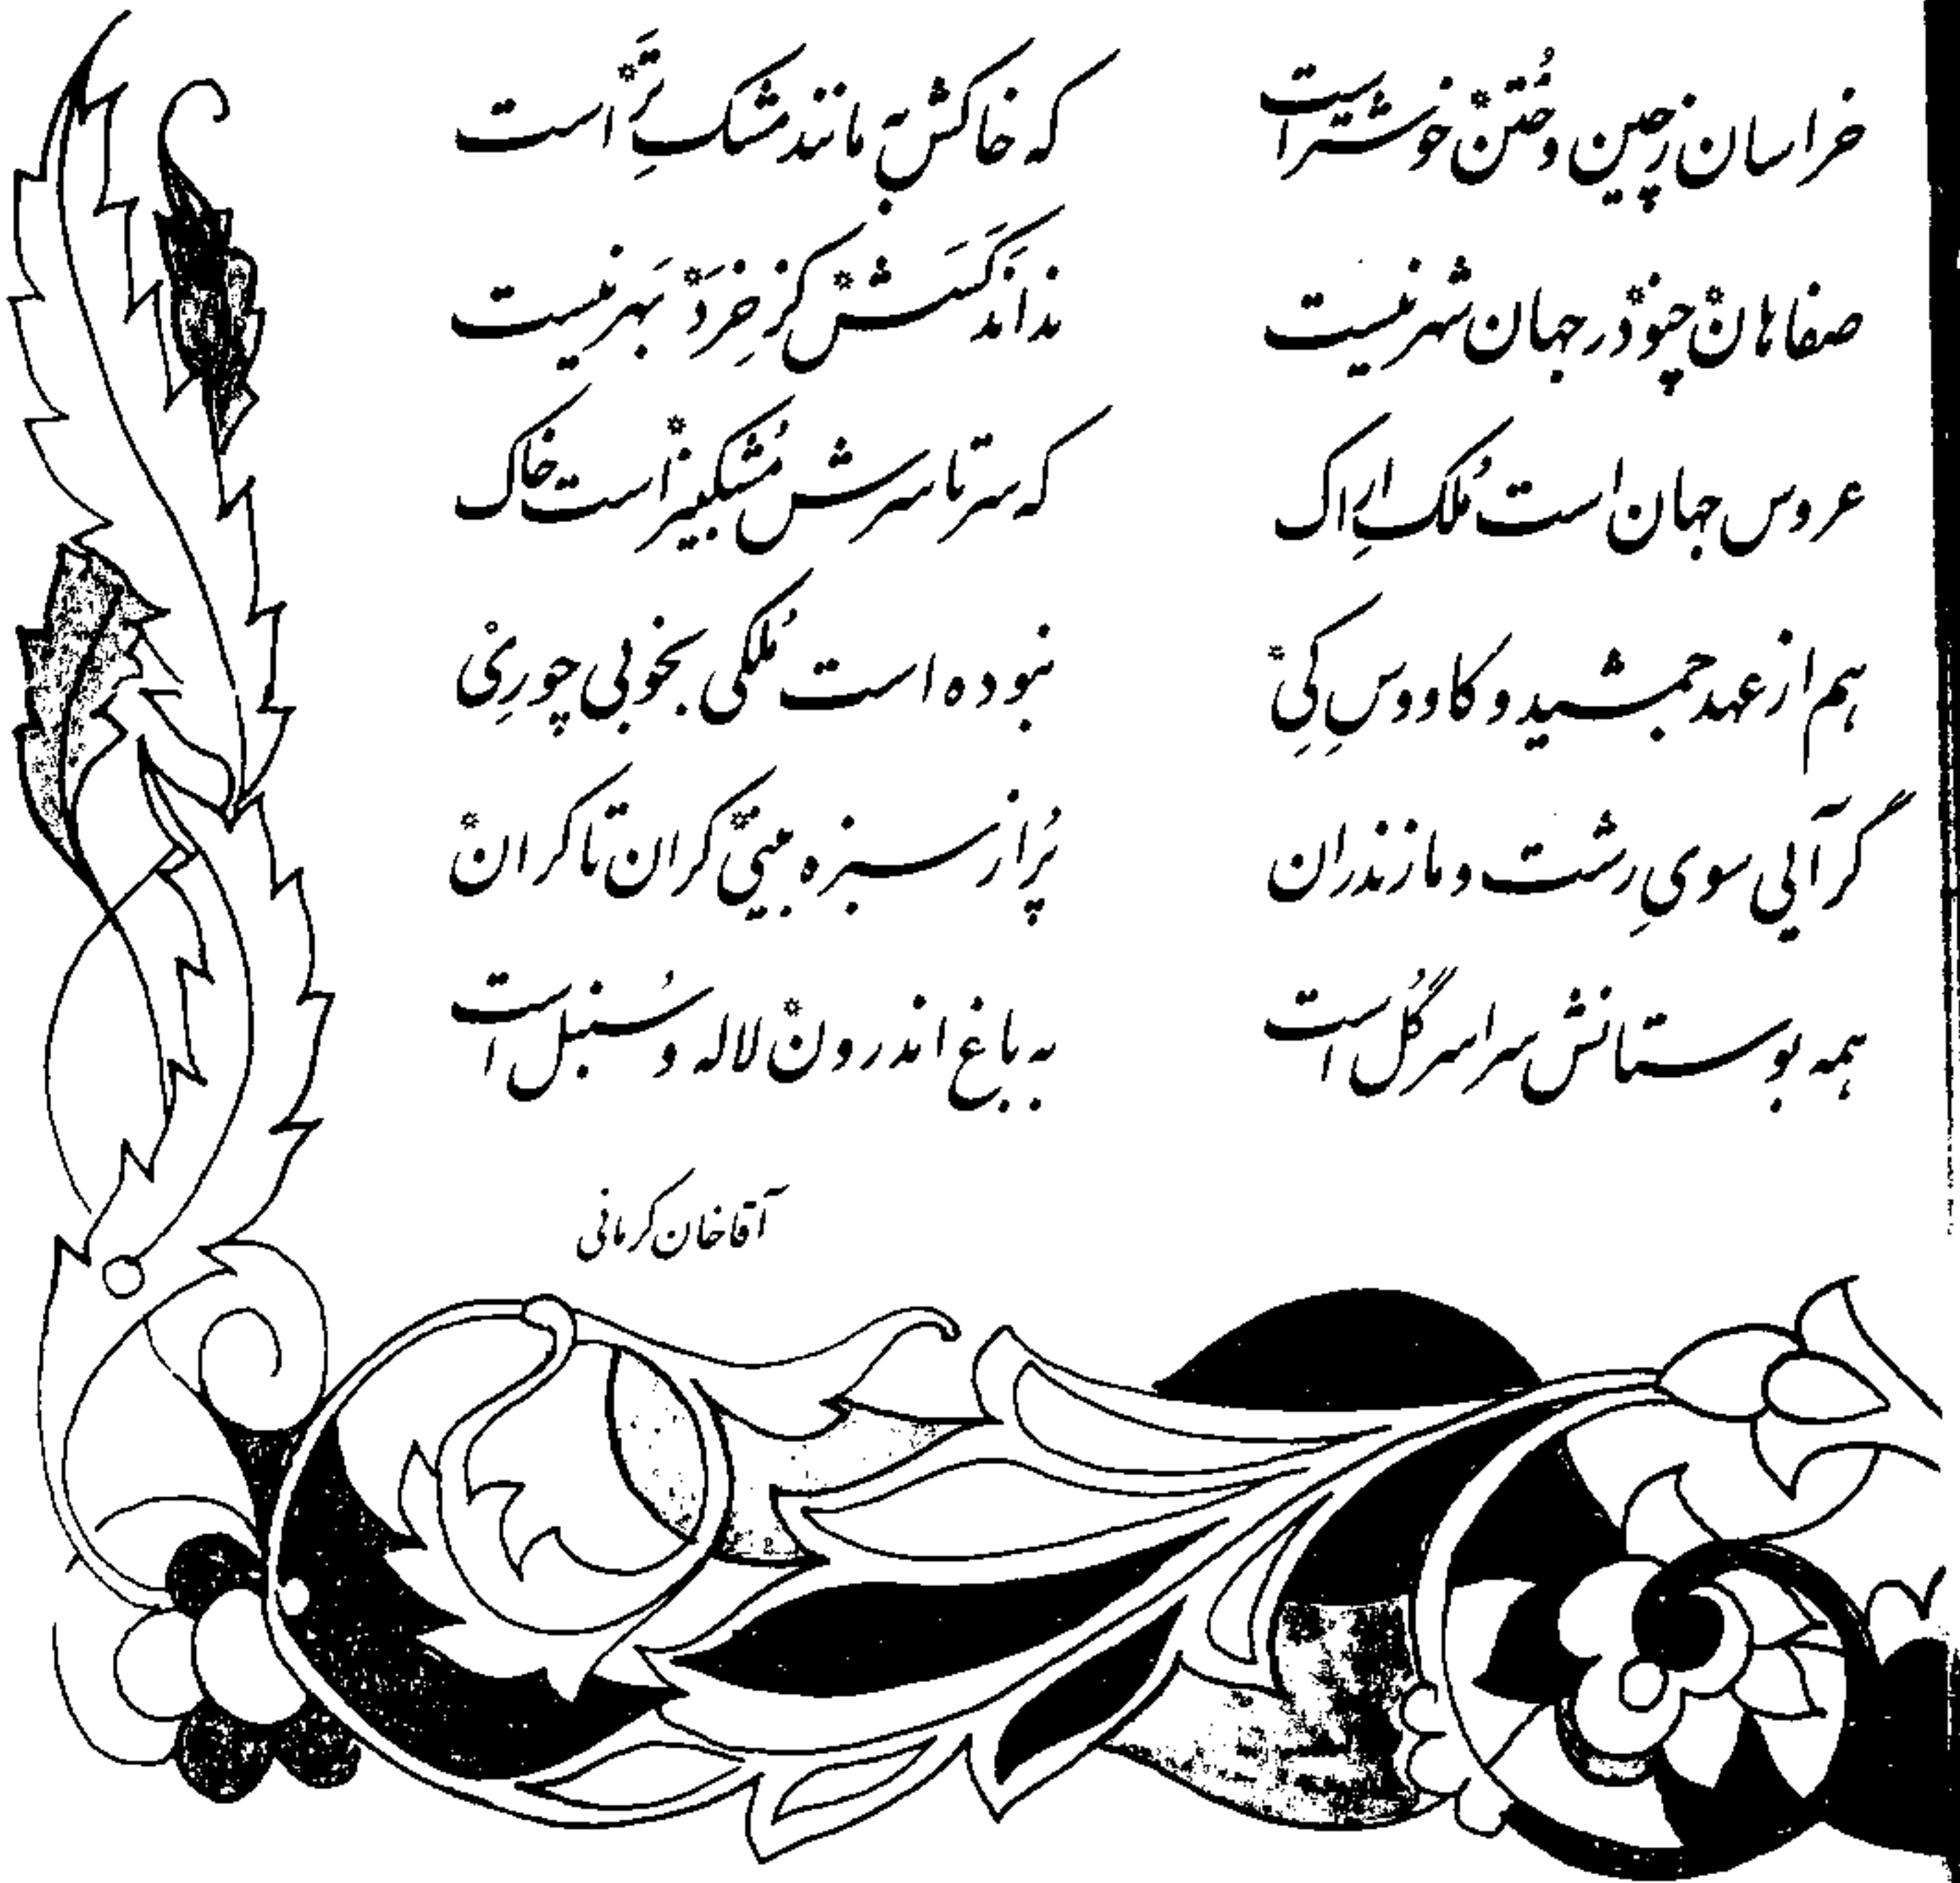 خراسان ز چین و خُتن خوشتر است که خاکش به مانندِ مشکِ تَر است
صفاهان چو در جهان شهر نیست نداند کَسَش کز خِرَد بَهر نیست
عروس جهان است مُلکِ اراک که سر تا سرش مُشکبیز است خاک
هم از عهد جمشید و کاووسِ کی نبوده است مُلکی بخوبی چو ری
گر آیی سویِ رشت و مازندران پُر از سبزه بینی کران تا کران
همه بوستانش سراسر گُل است به باغ اندرون لاله و سُنبل است
آقاخان کرمانی